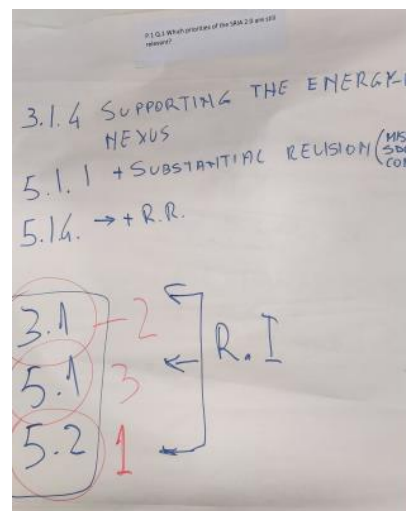 P.1 Q.1 Which priorities of the SRIA 2.0 are still
relevant?
3.1.4 SUPPORTING THE ENERGY-
NEXUS
5.1.1 + SUBSTANTIAL REUSION (MIS
SD
CO
5.14. → + R.R.
3.1 - 2
5.1 3
5.2 1
R.I